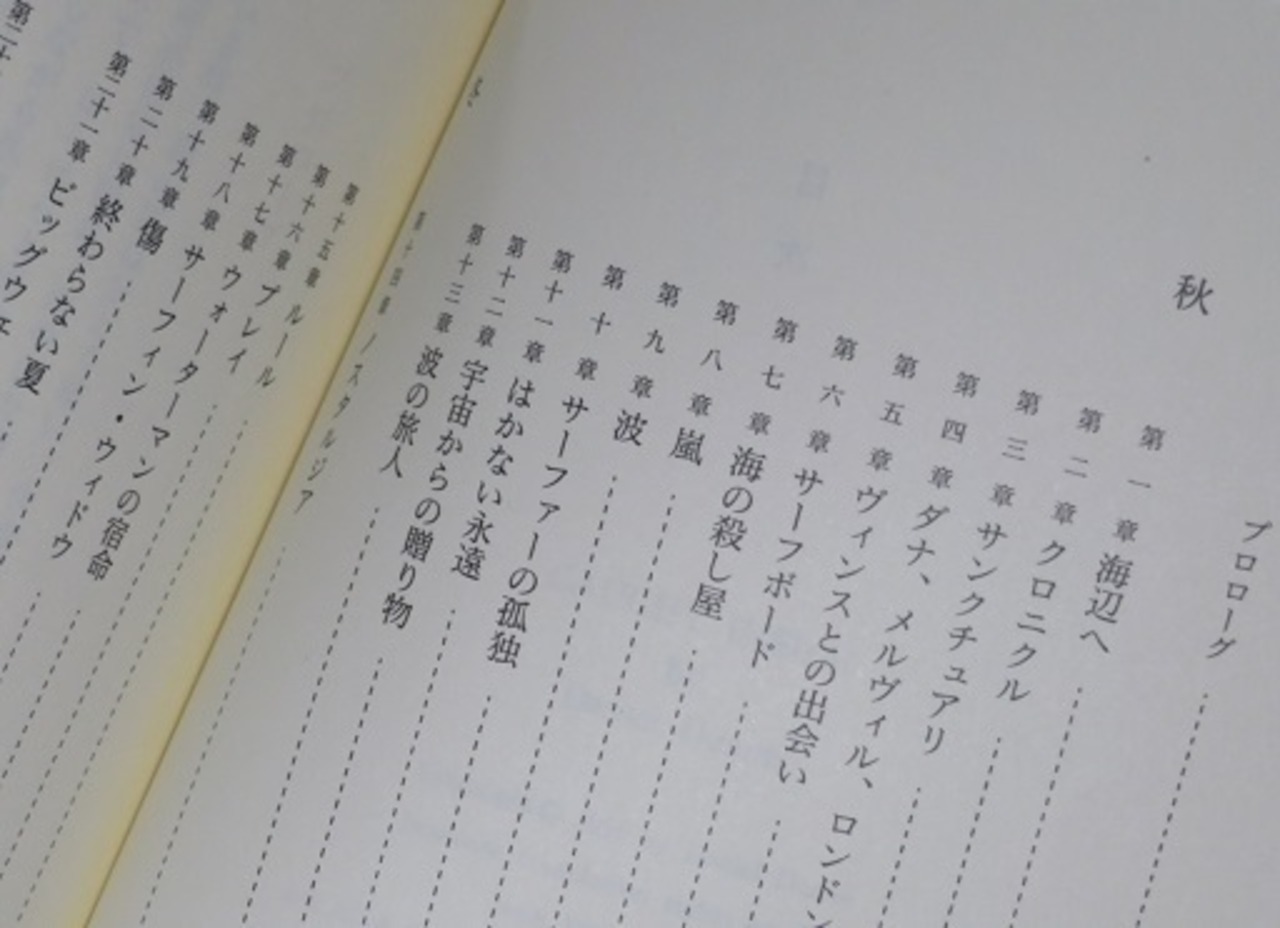 プロローグ
秋
第一章 海辺へ
第二章 クロニクル
第三章 サンクチュアリ
第四章 ダナ、メルヴィル、ロンドン
第五章 ヴィンスとの出会い
第六章 サーフボード
第七章 海の殺し屋
第八章 嵐
第九章 波
第十章 サーファーの孤独
第十一章 はかない永遠
第十二章 宇宙からの贈り物
第十三章 波の旅人
第十四章 ノスタルジア
第十五章 ルール
第十六章 プレイ
第十七章 ウォーターマンの宿命
第十八章 サーフィン・ウィドウ
第十九章 傷
第二十章 終わらない夏
第二十一章 ビッグウェ
第二十